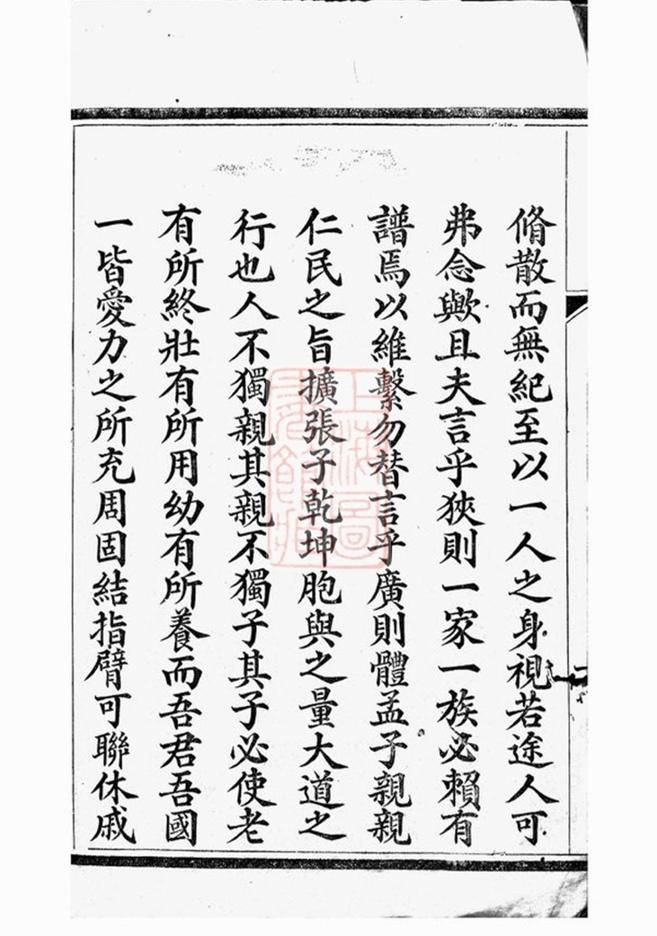 脩散而無紀至以一人之身視若途人可
弗念歟且夫言乎狹則一家一族必賴有
譜焉以維繫勿替言乎廣則體孟子親親
仁民之旨擴張子乾坤胞與之量大道之
行也人不獨親其親不獨子其子必使老
有所終壯有所用幼有所養而吾君吾國
一皆愛力之所充周固結指臂可聯休戚
上海圖
書館藏